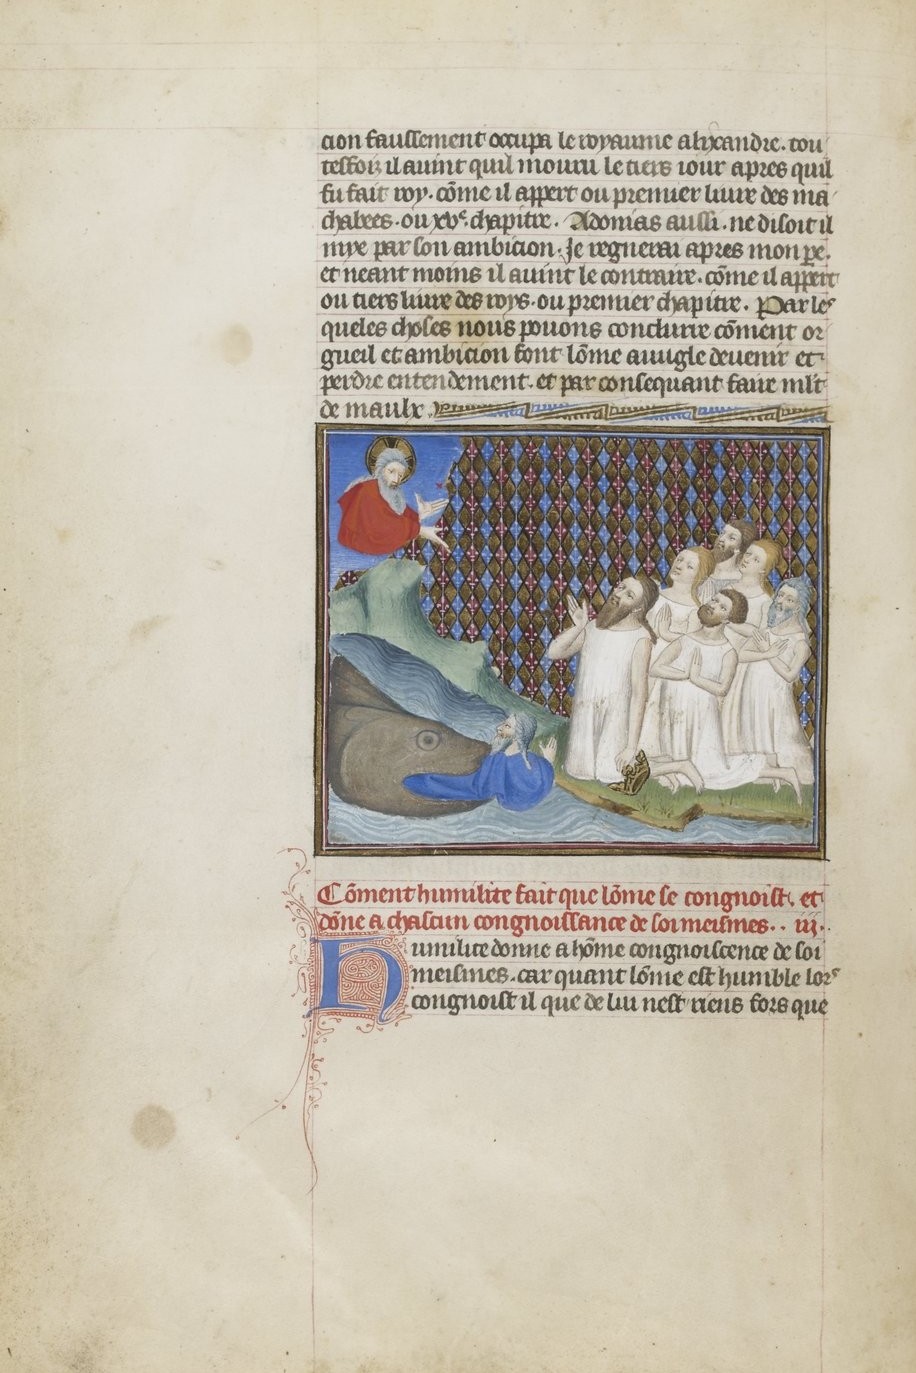 cion faussement occupa le royaume alixandre. tou
tesfois il auint quil mouru le tiers iour apres quil
fu fait roy. cõme il appert ou premier liure des ma
chabees. ou xvᵉ. chapitre. Adonias aussi. ne disoit il
mye par son ambicion. Je regnerai apres mon pe.
et neant moins il auint le contraire. cõme il appert
ou tiers liure des roys. ou premier chapitre. Par les
queles choses nous pouons conclurre cõment or
gueil et ambicion font lõme auugle deuenir et
perdre entendement. et par consequant faire mlt
de maulx.
Cõment humilite fait que lõme se congnoist. et
dõne a chascun congnoissance de soi meismes. . iii.
Humilite donne a hõme congnoiscence de soi
meismes. car quant lõme est humble lors
congnoist il que de lui nest riens fors que